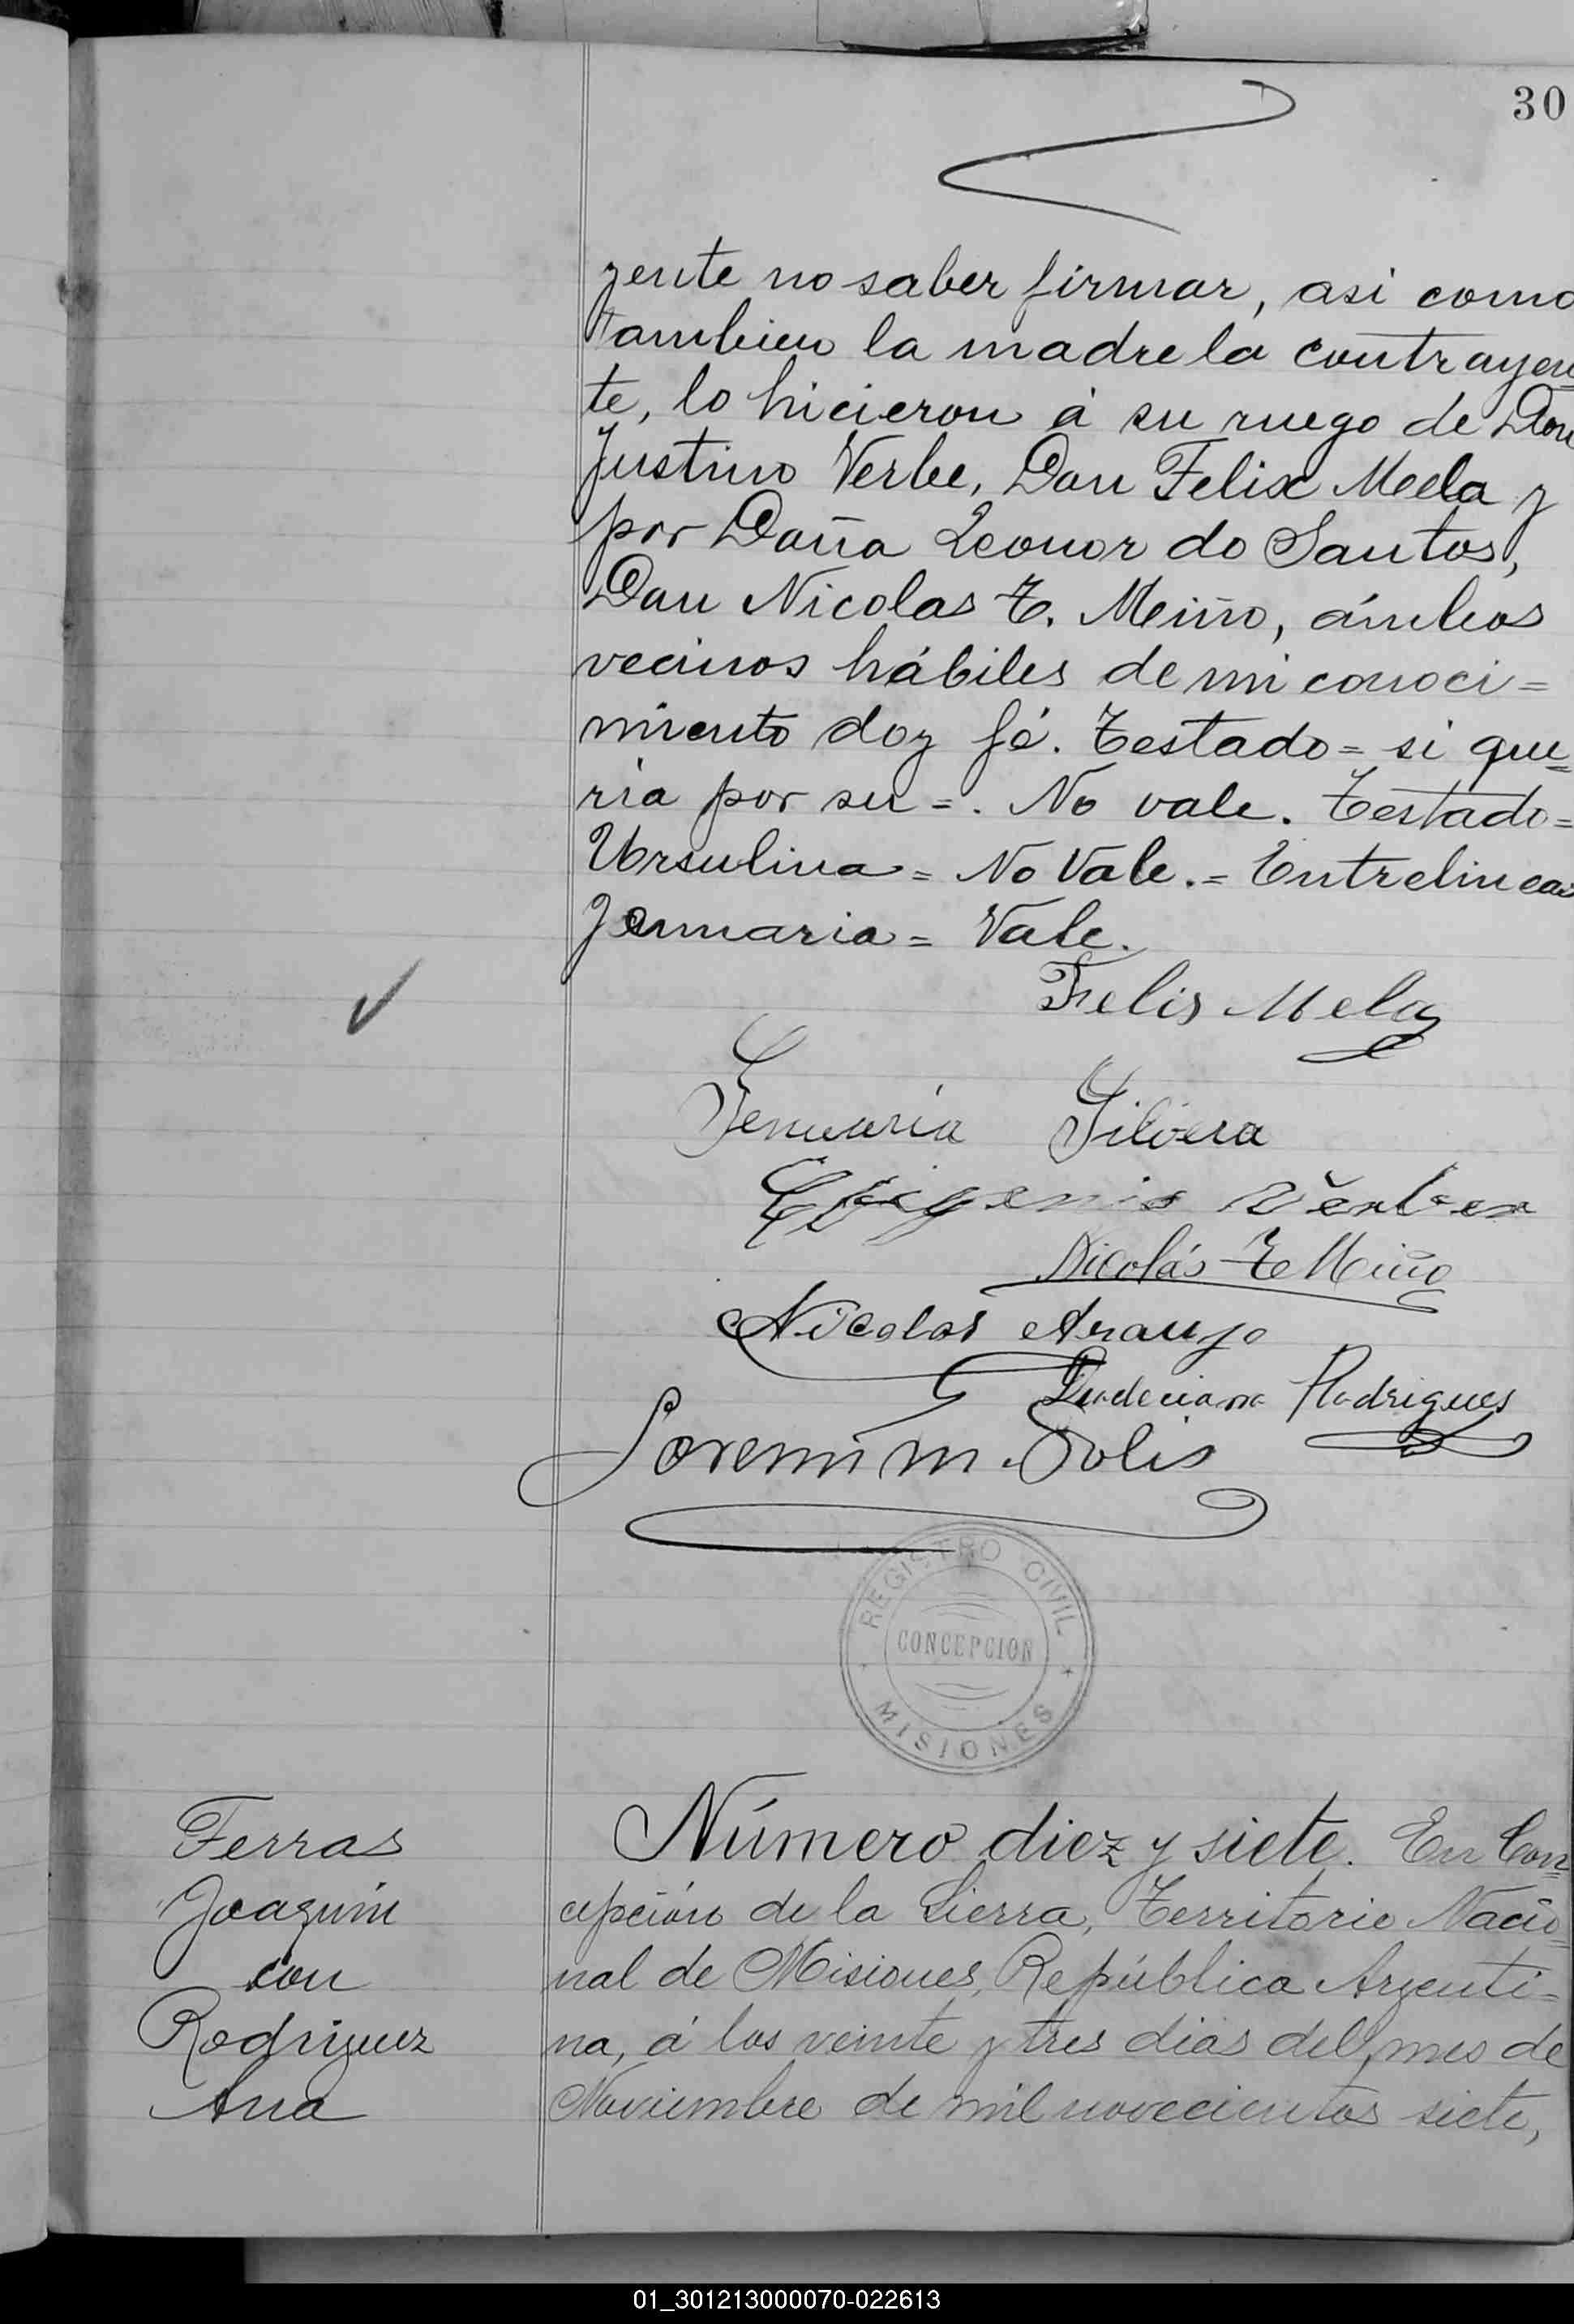 30
yente no saber firmar, asi como
tambien la madre la contrayen=
te, lo hicieron á su ruego de Don
Justino Verbe, Don Felix Mela y
por Doña Leonor do Santos,
Don Nicolas T. Meiño, ámbos
vecinos hábiles de mi conoci=
miento doy fé. Testado= si que=
ria por su=. No vale. Testado=
Ursulina= No Vale.= Entrelineas
Jenuaria= Vale.
Felis Mela
Jenuaria Silvera
Nicolás T Miño
Nicolas Araujo
Rodrigues
M. Solis
REGISTRO CIVIL
CONCEPCION
MISIONES
Ferras
Joaquin
con
Rodriguez
Ana
Número diez y siete. En Con=
cepción de la Sierra, Territorio Nacio=
nal de Misiones, República Argenti=
na, á los veinte y tres dias del mes de
Noviembre de mil novecientos siete,
01_301213000070-022613